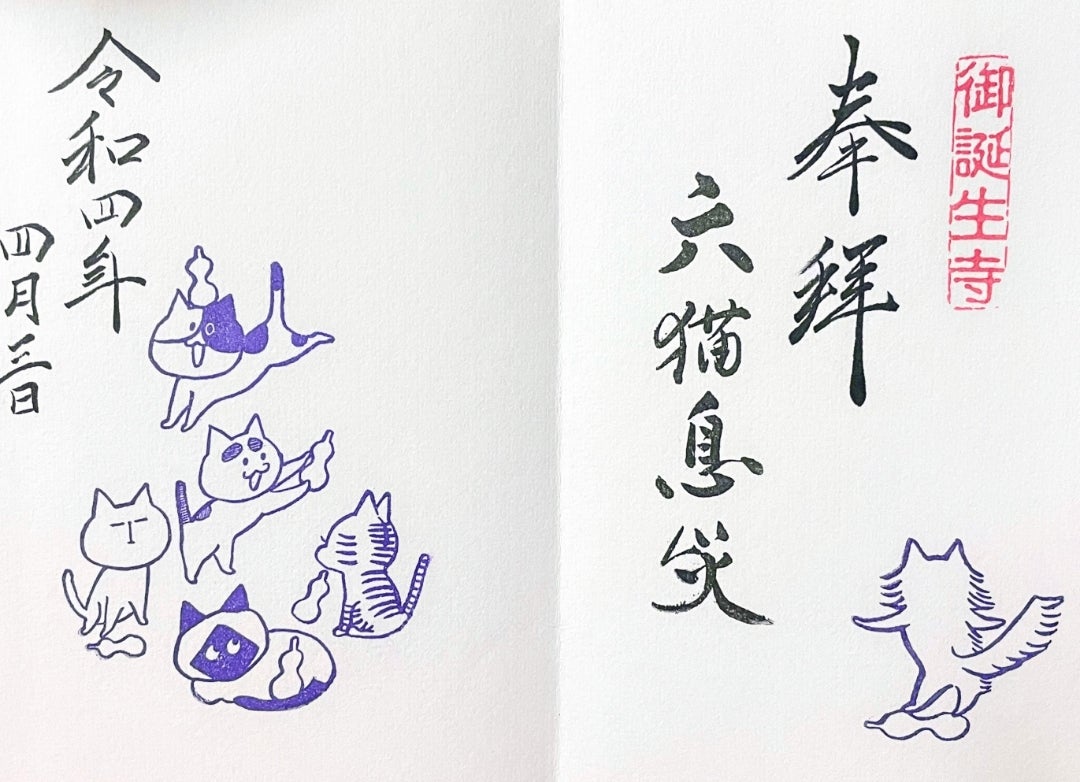 御誕生寺
奉拝
六猫息災
令和四年
四月三日